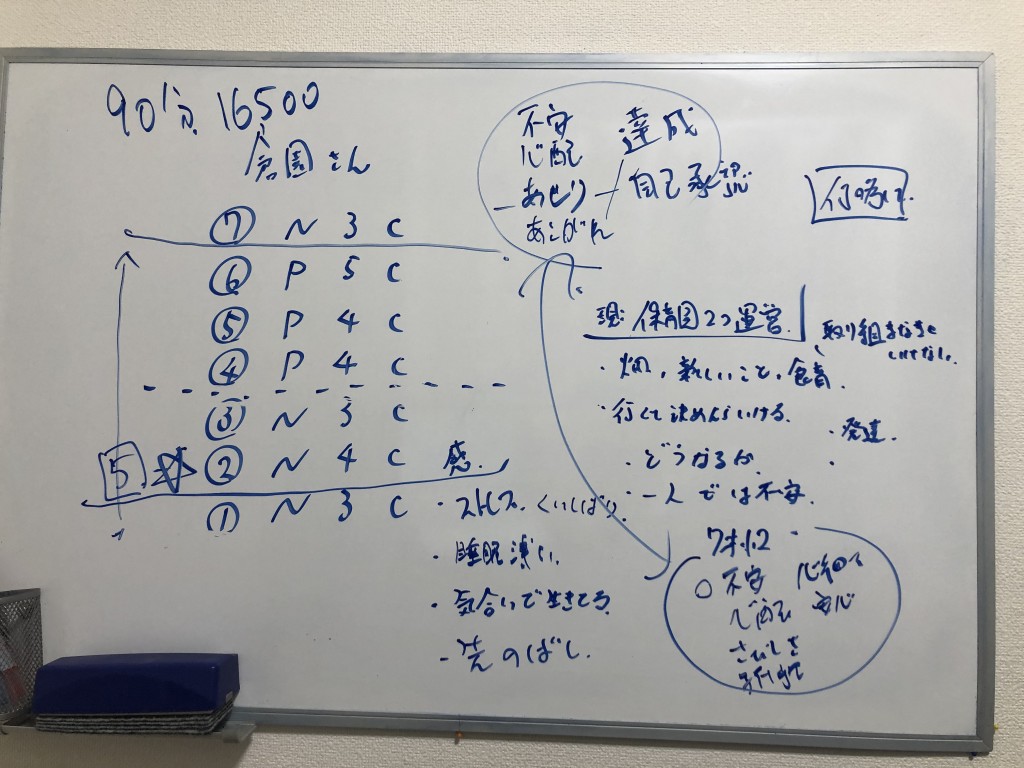 90分 16500
倉園さん
⑦ N 3 C
⑥ P 5 C
⑤ P 4 C
④ P 4 C
③ N 3 C
5 ☆ ② N 4 C 感.
① N 3 C
・ストレス くいしばり.
・睡眠浅い.
・気合いで生きてる.
・先のばし.
不安
心配
あせり
あこがれ
達成
自己承認
現: 保育園2つ運営.
取り組まなきゃ
いけない.
・畑, 新しいこと, 食育.
・行くて決めたらいける.
・発達.
・どうなるか
・一人では不安.
7才
○不安
心配
さびしさ
心細い
安心